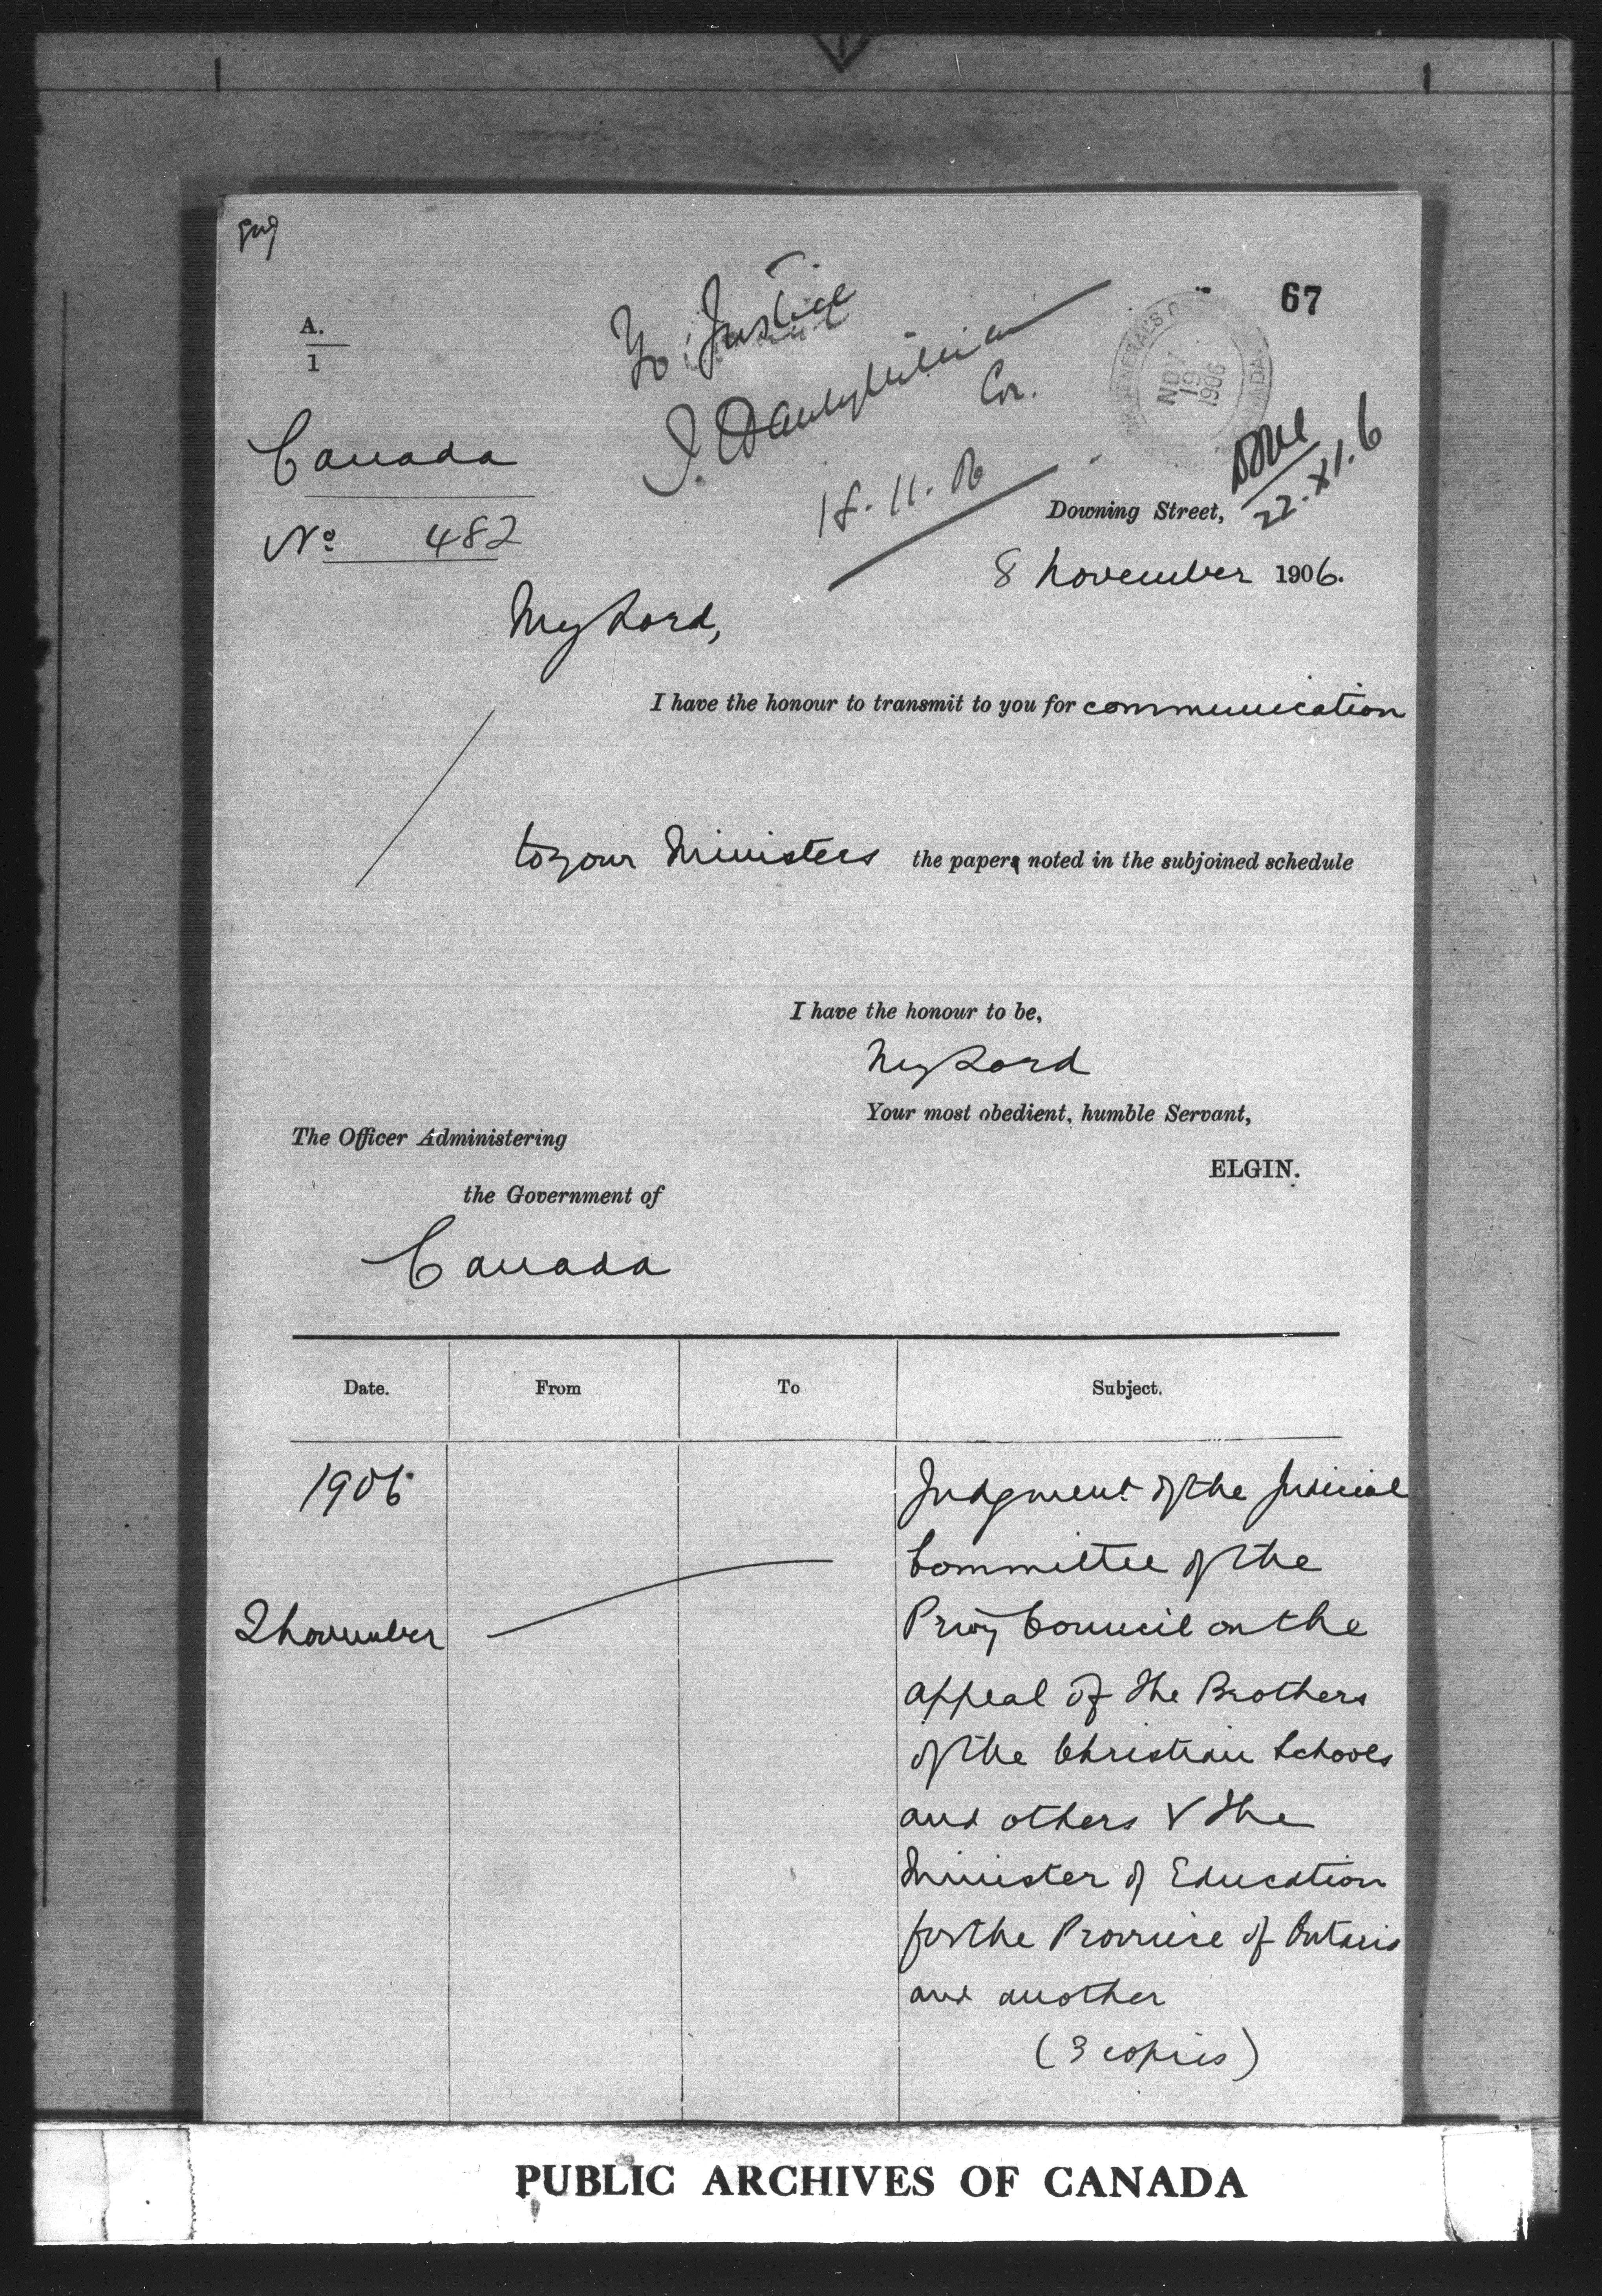 67
A.
1
To Justice
Cor.
18.11.06
GENERAL'S O
NOV
19
1906
Done
22.XI.6
Canada
No 482
Downing Street,
8 November 1906.
My Lord,
I have the honour to transmit to you for communication
to your Ministers the papers noted in the subjoined schedule
I have the honour to be,
My Lord
Your most obedient, humble Servant,
ELGIN.
The Officer Administering
the Government of
Canada
Date. From To Subject.
1906
2 November
Judgment of the Judicial
Committee of the
Privy Council on the
appeal of the Brothers
of the Christian Schools
and others v the
Minister of Education
for the Province of Ontario
and another
(3 copies)
PUBLIC ARCHIVES OF CANADA